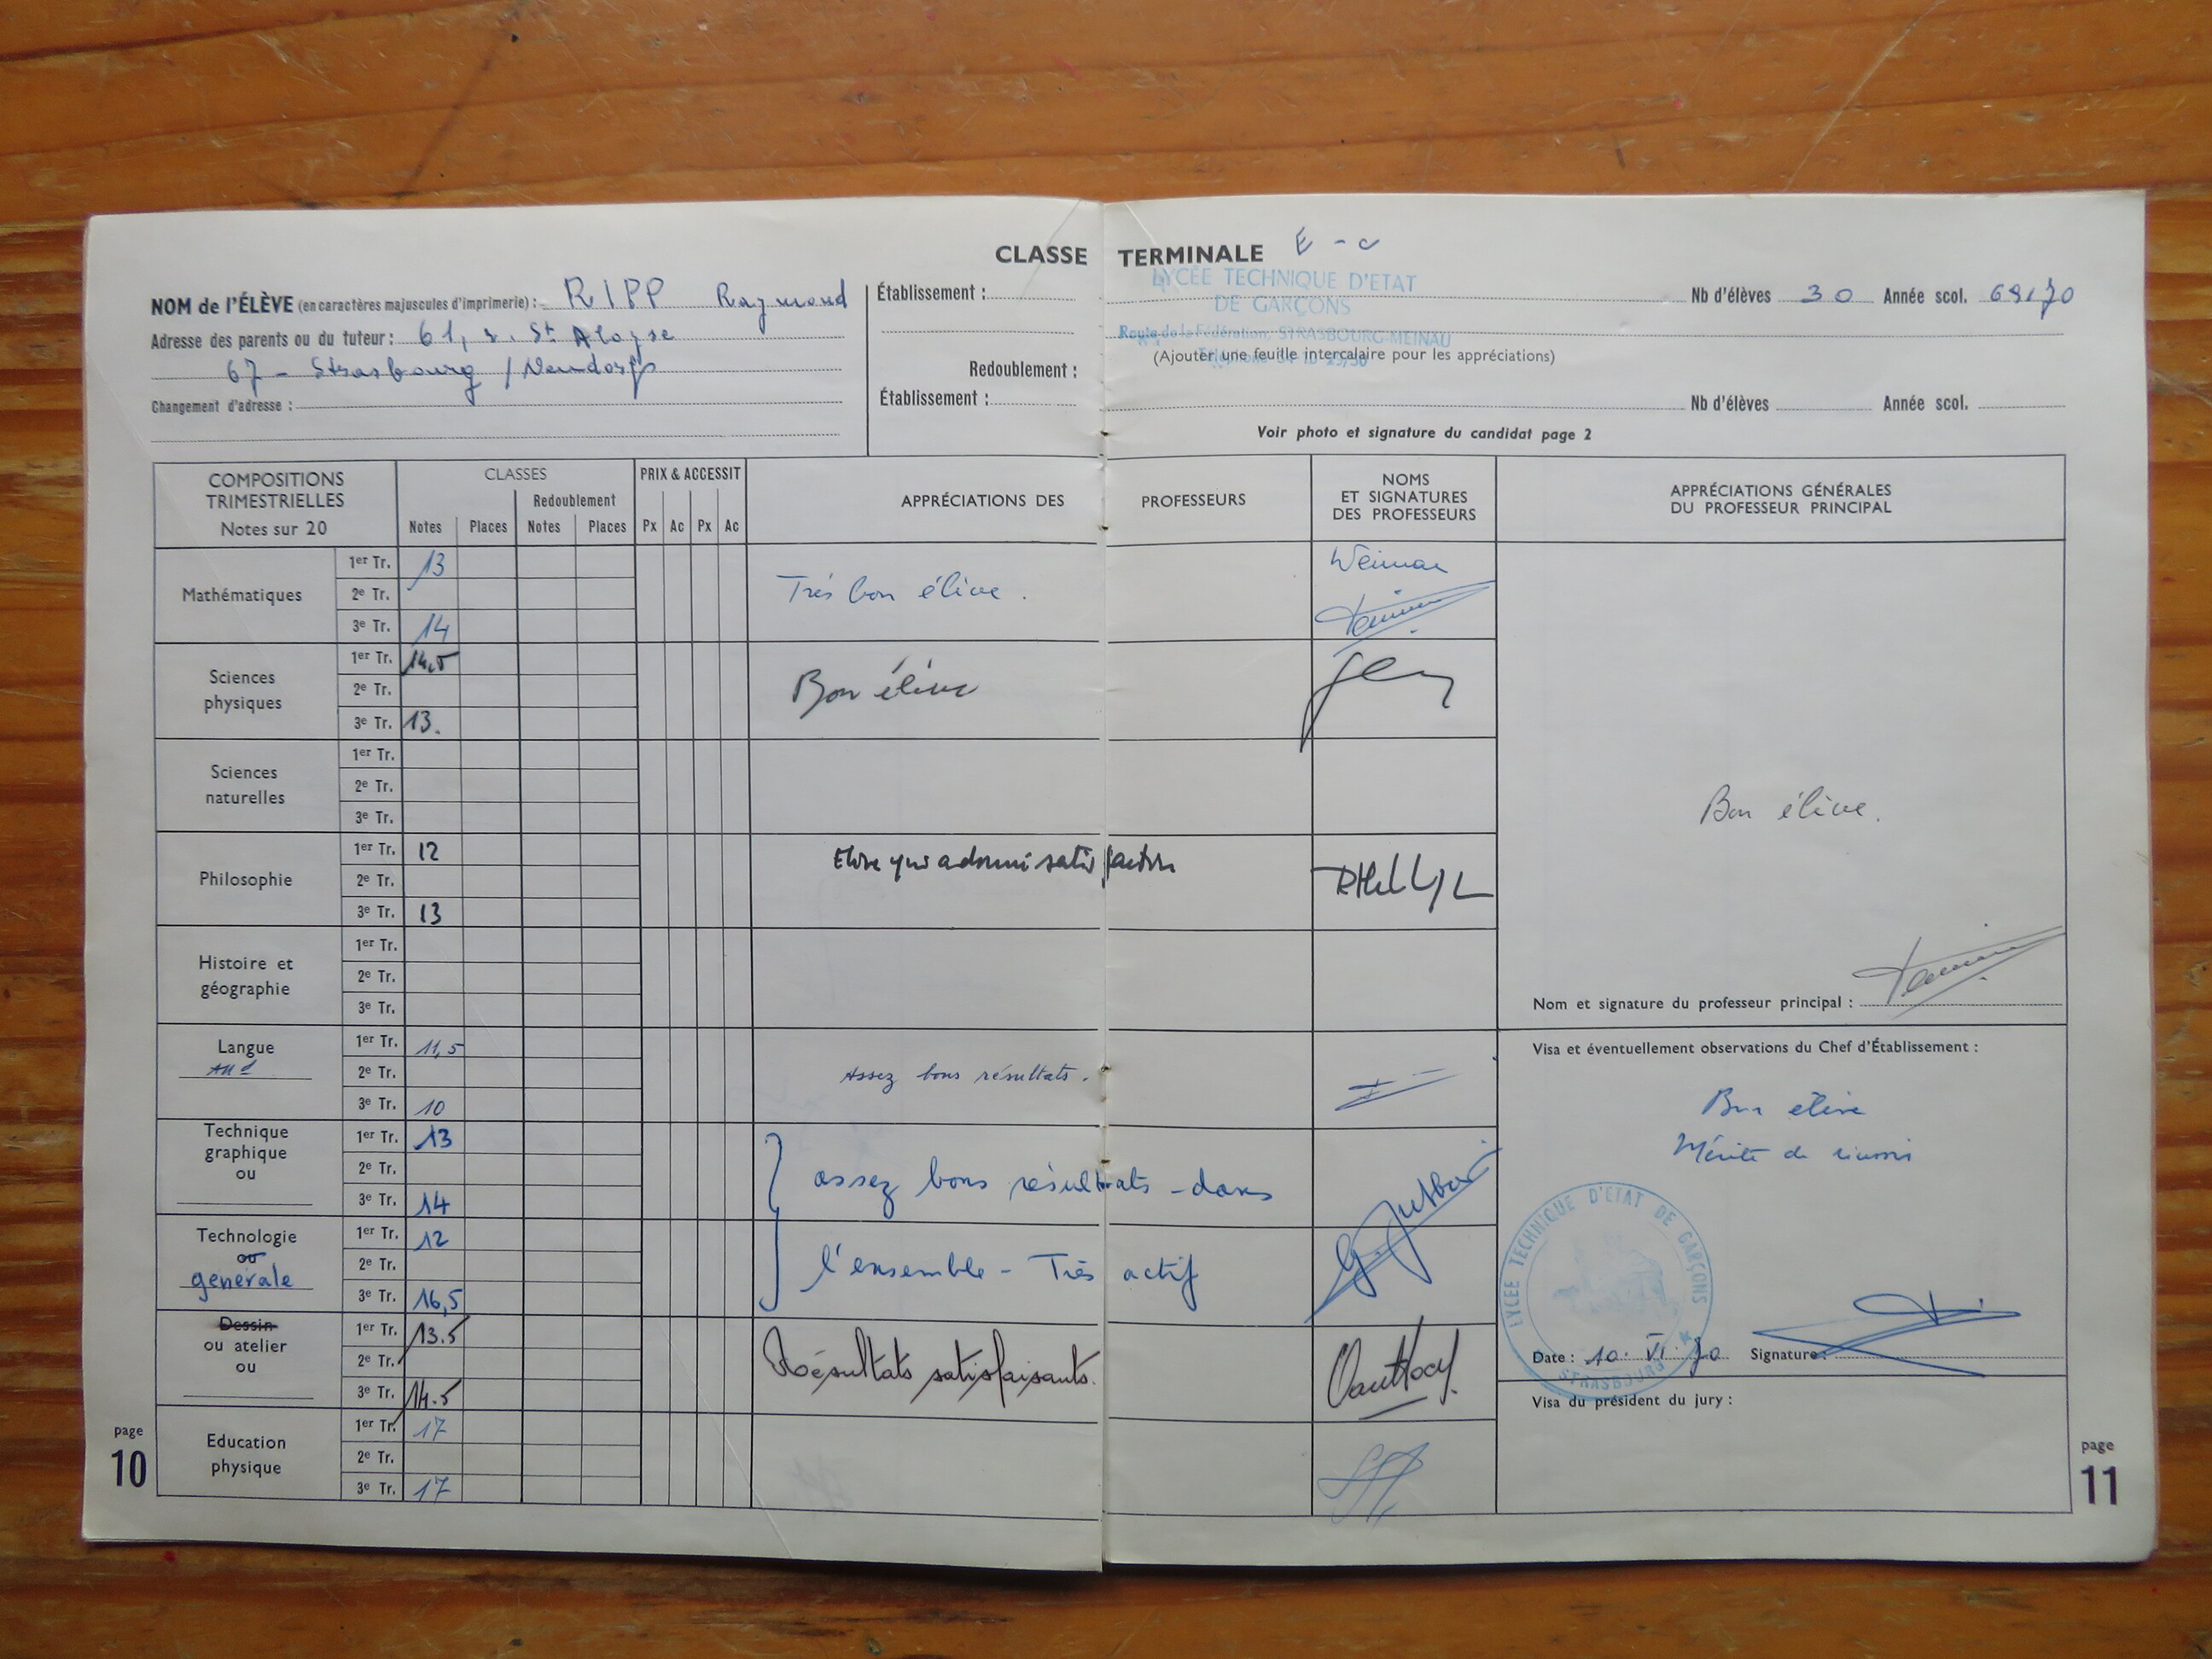 CLASSE TERMINALE E - C
NOM de l'ÉLÈVE (en caractères majuscules d'imprimerie) : RIPP Raymond
Adresse des parents ou du tuteur : 61, r. St Aloyse
67 - Strasbourg / Neudorf
Changement d'adresse :
Établissement :
LYCÉE TECHNIQUE D'ETAT
DE GARÇONS
Route de la Fédération, STRASBOURG-MEINAU
Nb d'élèves 30 Année scol. 69/70
(Ajouter une feuille intercalaire pour les appréciations)
Redoublement :
Établissement :
Nb d'élèves Année scol.
Voir photo et signature du candidat page 2
COMPOSITIONS
TRIMESTRIELLES
Notes sur 20
CLASSES
Redoublement
Notes Places Notes Places
PRIX & ACCESSIT
Px Ac Px Ac
APPRÉCIATIONS DES PROFESSEURS
NOMS
ET SIGNATURES
DES PROFESSEURS
APPRÉCIATIONS GÉNÉRALES
DU PROFESSEUR PRINCIPAL
Mathématiques
1er Tr. 13
2e Tr.
3e Tr. 14
Très bon élève.
Sciences
physiques
1er Tr. 14,5
2e Tr.
3e Tr. 13.
Bon élève
Sciences
naturelles
1er Tr.
2e Tr.
3e Tr.
Philosophie
1er Tr. 12
2e Tr.
3e Tr. 13
Elève qui a donné satisfaction
Histoire et
géographie
1er Tr.
2e Tr.
3e Tr.
Langue
All d
1er Tr. 11,5
2e Tr.
3e Tr. 10
Assez bons résultats.
Technique
graphique
ou
1er Tr. 13
2e Tr.
3e Tr. 14
assez bons résultats - dans
Technologie
ou
générale
1er Tr. 12
2e Tr.
3e Tr. 16,5
l'ensemble - Très actif
Dessin
ou atelier
ou
1er Tr. 13.5
2e Tr.
3e Tr. 14.5
Résultats satisfaisants.
Education
physique
1er Tr. 17
2e Tr.
3e Tr. 17
Bon élève.
Nom et signature du professeur principal :
Visa et éventuellement observations du Chef d'Établissement :
Bon élève
Mérite de réussir
LYCÉE TECHNIQUE D'ETAT DE GARÇONS
STRASBOURG
Date : 10. VI. 70 Signature :
Visa du président du jury :
page
10
page
11